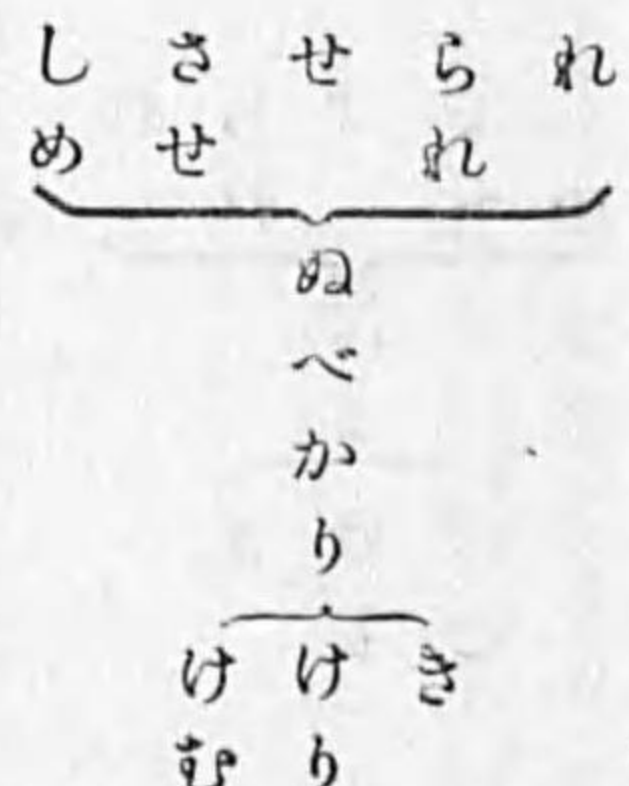 れ
られ
せ
させ
しめ
ぬべかり
き
けり
けむ